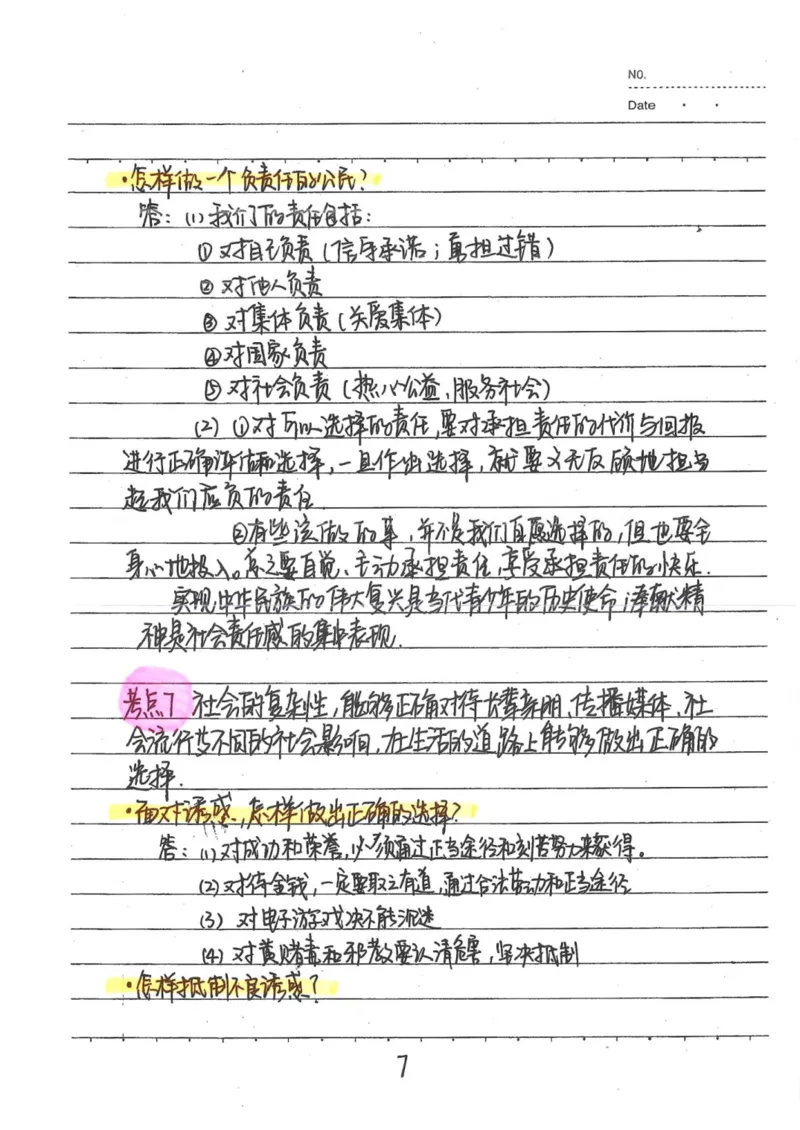 NO.
Date
·怎样做一个负责任的公民?
答:(1)我们的责任包括:
①对自己负责(信守承诺;勇担过错)
②对他人负责
③对集体负责(关爱集体)
④对国家负责
⑤对社会负责(热心公益,服务社会)
(2)①对可以选择的责任,要对承担责任的代价与回报
进行正确评估和选择,一旦作出选择,就要义无反顾地担当
起我们应负的责任.
②有些该做的事,并不是我们自愿选择的,但也要全
身心地投入。总之要自觉、主动承担责任,享受承担责任的快乐.
实现中华民族的伟大复兴是当代青少年的历史使命;奉献精
神是社会责任感的集中表现.
考点7 社会的复杂性,能够正确对待长辈亲朋、传播媒体、社
会流行等不同的社会影响,在生活的道路上能够做出正确的
选择.
·面对诱惑,怎样做出正确的选择?
答:(1)对成功和荣誉,必须通过正当途径和刻苦努力来获得。
(2)对待金钱,一定要取之有道,通过合法劳动和正当途径
(3) 对电子游戏决不能沉迷
(4)对黄赌毒和邪教要认清危害,坚决抵制
·怎样抵制不良诱惑?
7